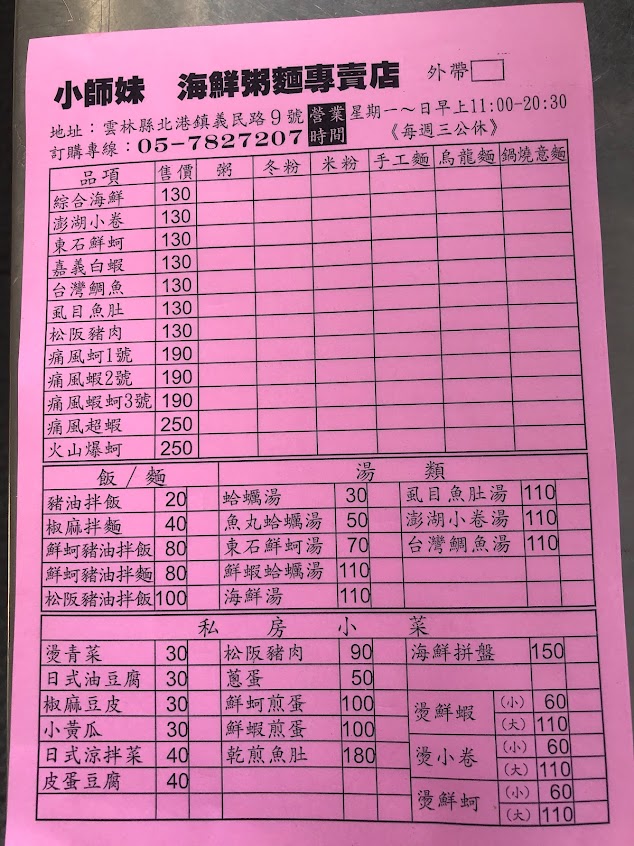 小師妹 海鮮粥麵專賣店 外帶
地址：雲林縣北港鎮義民路9號 營業時間 星期一～日早上11:00-20:30
訂購專線：05-7827207 《每週三公休》
品項 售價 粥 冬粉 米粉 手工麵 烏龍麵 鍋燒意麵
綜合海鮮 130
澎湖小卷 130
東石鮮蚵 130
嘉義白蝦 130
台灣鯛魚 130
虱目魚肚 130
松阪豬肉 130
痛風蚵1號 190
痛風蝦2號 190
痛風蝦蚵3號 190
痛風超蝦 250
火山爆蚵 250
飯/麵 湯類
豬油拌飯 20 蛤蠣湯 30 虱目魚肚湯 110
椒麻拌麵 40 魚丸蛤蠣湯 50 澎湖小卷湯 110
鮮蚵豬油拌飯 80 東石鮮蚵湯 70 台灣鯛魚湯 110
鮮蚵豬油拌麵 80 鮮蝦蛤蠣湯 110
松阪豬油拌飯 100 海鮮湯 110
私房小菜
燙青菜 30 松阪豬肉 90 海鮮拼盤 150
日式油豆腐 30 蔥蛋 50
椒麻豆皮 30 鮮蚵煎蛋 100 燙鮮蝦 (小) 60
小黃瓜 30 鮮蝦煎蛋 100 (大) 110
日式涼拌菜 40 乾煎魚肚 180 燙小卷 (小) 60
皮蛋豆腐 40 (大) 110
燙鮮蚵 (小) 60
(大) 110